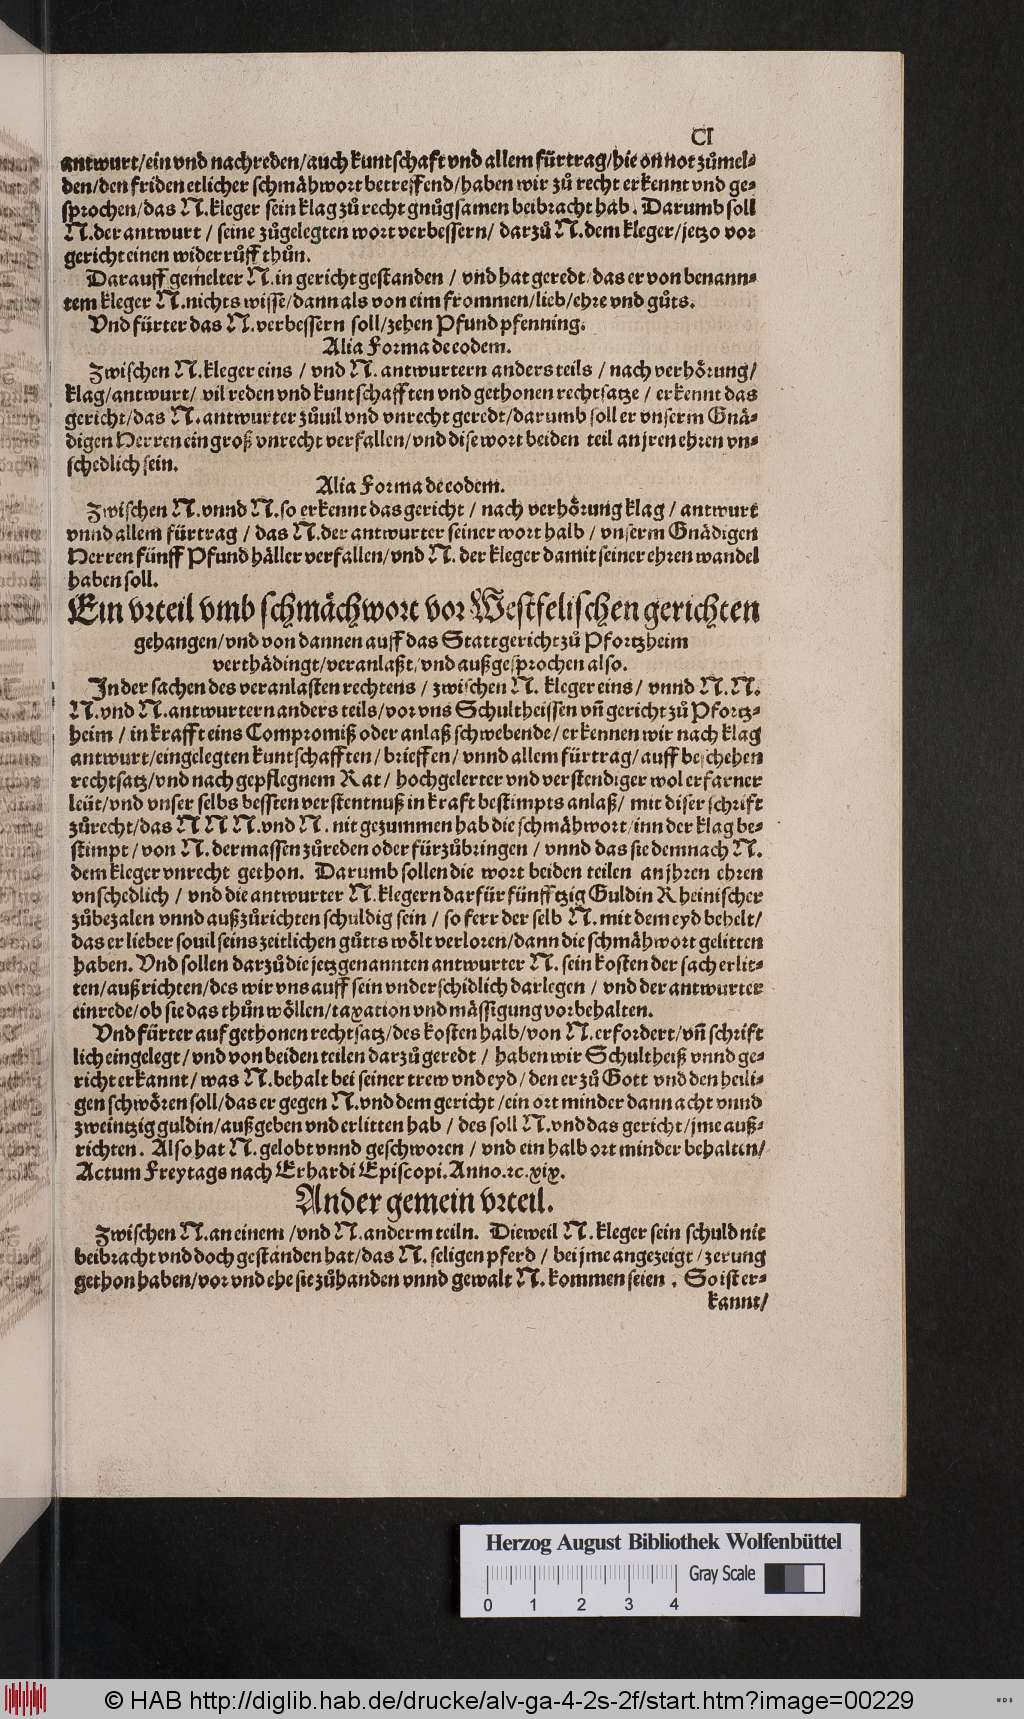 CI
antwurt/ein vnd nachreden/auch kuntschaft vnd allem fürtrag/hie on not zů mel-
den/den friden etlicher schmähwort betreffend/haben wir zů recht erkennt vnd ge-
sprochen/das N. kleger sein klag zů recht gnůgsamen beibracht hab. Darumb soll
N. der antwurt / seine zůgelegten wort verbessern/ darzů N. dem kleger/jetzo vor
gericht einen widerrůff thůn.
Darauff gemelter N. in gericht gestanden / vnd hat geredt/das er von benann-
tem kleger N. nichts wisse/dann als von eim frommen/lieb/ehre vnd gůts.
Vnd fürter das N. verbessern soll/zehen Pfund pfenning.
Alia Forma de eodem.
Zwischen N. kleger eins / vnd N. antwurtern anders teils / nach verhörung/
klag/antwurt/ vil reden vnd kuntschafften vnd gethonen rechtsatze / erkennt das
gericht/das N. antwurter zůuil vnd vnrecht geredt/darumb soll er vnserm Gnä-
digen Herren ein groß vnrecht verfallen/vnd dise wort beiden teil an jren ehren vn-
schedlich sein.
Alia Forma de eodem.
Zwischen N. vnnd N. so erkennt das gericht / nach verhörung klag / antwurt
vnnd allem fürtrag / das N. der antwurter seiner wort halb / vnserm Gnädigen
Herren fünff Pfund häller verfallen/vnd N. der kleger damit seiner ehren wandel
haben soll.
Ein vrteil vmb schmächwort vor Westfelischen gerichten
gehangen/vnd von dannen auff das Stattgericht zů Pfortzheim
verthädingt/veranlaßt/vnd außgesprochen also.
In der sachen des veranlasten rechtens / zwischen N. kleger eins/ vnnd N. N.
N. vnd N. antwurtern anders teils/vor vns Schultheissen vñ gericht zů Pfortz-
heim / in krafft eins Compromiß oder anlaß schwebende/erkennen wir nach klag
antwurt/eingelegten kuntschafften/ brieffen/ vnnd allem fürtrag/auff beschehen
rechtsatz/vnd nach gepflegnem Rat/ hochgelerter vnd verstendiger wol erfarner
leüt/vnd vnser selbs bessten verstentnuß in kraft bestimpts anlaß/ mit diser schrift
zůrecht/das N N N. vnd N. nit gezummen hab die schmähwort/inn der klag be-
stimpt/von N. dermassen zůreden oder fürzůbringen / vnnd das sie demnach N.
dem kleger vnrecht gethon. Darumb sollen die wort beiden teilen an jhren ehren
vnschedlich / vnd die antwurter N. klegern darfür fünfftzig Guldin Rheinischer
zůbezalen vnnd außzůrichten schuldig sein / so ferr der selb N. mit dem eyd behelt/
das er lieber souil seins zeitlichen gůtts wölt verloren/dann die schmähwort gelitten
haben. Vnd sollen darzů die jetzgenannten antwurter N. sein kosten der sach erlit-
ten/außrichten/des wir vns auff sein vnderschidlich darlegen / vnd der antwurter
einrede/ob sie das thůn wöllen/taxation vnd mässigung vorbehalten.
Vnd fürter auf gethonen rechtsatz/des kosten halb/von N. erfordert/vñ schrift
lich eingelegt/vnd von beiden teilen darzů geredt / haben wir Schultheiß vnnd ge-
richt erkannt/ was N. behalt bei seiner trew vnd eyd/den er zů Gott vnd den heili-
gen schwören soll/das er gegen N. vnd dem gericht /ein ort minder dann acht vnnd
zweintzig guldin/außgeben vnd erlitten hab / des soll N. vnd das gericht/jme auß-
richten. Also hat N. gelobt vnnd geschworen / vnd ein halb ort minder behalten/
Actum Freytags nach Erhardi Episcopi. Anno. ꝛc. xix.
Ander gemein vrteil.
Zwischen N. an einem /vnd N. anderm teiln. Dieweil N. kleger sein schuld nit
beibracht vnd doch gestanden hat/das N. seligen pferd / bei jme angezeigt/zerung
gethon haben/vor vnd ehe sie zůhanden vnnd gewalt N. kommen seien. So ist er-
kannt/
Herzog August Bibliothek Wolfenbüttel
Gray Scale
0 1 2 3 4
© HAB http://diglib.hab.de/drucke/alv-ga-4-2s-2f/start.htm?image=00229
WDB